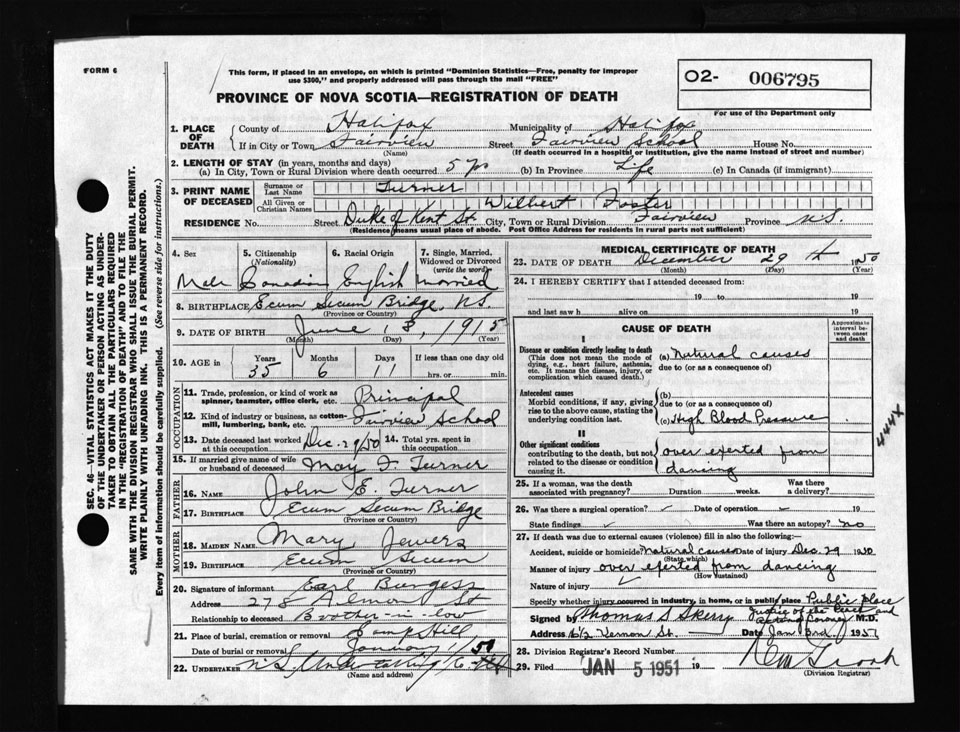 FORM 6
This form, if placed in an envelope, on which is printed "Dominion Statistics—Free, penalty for improper
use $300," and properly addressed will pass through the mail "FREE"
PROVINCE OF NOVA SCOTIA—REGISTRATION OF DEATH
O2- 006795
For use of the Department only
SEC. 46—VITAL STATISTICS ACT MAKES IT THE DUTY
OF THE UNDERTAKER OR PERSON ACTING AS UNDER-
TAKER TO OBTAIN ALL THE PARTICULARS REQUIRED
IN THE "REGISTRATION OF DEATH" AND TO FILE THE
SAME WITH THE DIVISION REGISTRAR WHO SHALL ISSUE THE BURIAL PERMIT.
WRITE PLAINLY WITH UNFADING INK. THIS IS A PERMANENT RECORD.
Every item of information should be carefully supplied. (See reverse side for instructions.)
1. PLACE OF DEATH County of Halifax Municipality of Halifax
If in City or Town Fairview Street Fairview School House No.
(Name) (If death occurred in a hospital or institution, give the name instead of street and number)
2. LENGTH OF STAY (in years, months and days)
(a) In City, Town or Rural Division where death occurred 5 yrs (b) In Province Life (c) In Canada (if immigrant)
3. PRINT NAME OF DECEASED Surname or Last Name Turner
All Given or Christian Names Wilbert Foster
RESIDENCE No. Street Duke of Kent St. City, Town or Rural Division Fairview Province N.S.
(Residence means usual place of abode. Post Office Address for residents in rural parts not sufficient)
4. Sex 5. Citizenship (Nationality) 6. Racial Origin 7. Single, Married, Widowed or Divorced (write the word)
Male Canadian English Married
8. BIRTHPLACE Ecum Secum Bridge, N.S.
(Province or Country)
9. DATE OF BIRTH June 18, 1915
(Month) (Day) (Year)
10. AGE in Years Months Days If less than one day old
35 6 11 hrs. or min.
OCCUPATION
11. Trade, profession, or kind of work as spinner, teamster, office clerk, etc. Principal
12. Kind of industry or business, as cotton-mill, lumbering, bank, etc. Fairview School
13. Date deceased last worked at this occupation Dec. 29/50 14. Total yrs. spent in this occupation
15. If married give name of wife or husband of deceased May I. Turner
FATHER
16. Name John E. Turner
17. Birthplace Ecum Secum Bridge
(Province or Country)
MOTHER
18. Maiden Name Mary Jewers
19. Birthplace Ecum Secum
(Province or Country)
20. Signature of informant Earl Burgess
Address St
Relationship to deceased Brother-in-law
21. Place of burial, cremation or removal Camp Hill
Date of burial or removal January 1/51
22. Undertaker N.S. Undertaking Co.
(Name and address)
MEDICAL CERTIFICATE OF DEATH
23. DATE OF DEATH December 29th 1950
(Month) (Day) (Year)
24. I HEREBY CERTIFY that I attended deceased from:
19 to 19
and last saw h alive on 19
CAUSE OF DEATH
Approximate interval between onset and death
I
Disease or condition directly leading to death (a) Natural causes
(This does not mean the mode of dying, e.g., heart failure, asthenia, etc. It means the disease, injury, or complication which caused death.) due to (or as a consequence of)
Antecedent causes (b)
Morbid conditions, if any, giving rise to the above cause, stating the underlying condition last. due to (or as a consequence of)
(c) High Blood Pressure
II
Other significant conditions
contributing to the death, but not related to the disease or condition causing it. over exerted from dancing
444X
25. If a woman, was the death associated with pregnancy? Duration weeks. Was there a delivery?
26. Was there a surgical operation? Date of operation 19
State findings Was there an autopsy? no
27. If death was due to external causes (violence) fill in also the following:—
Accident, suicide or homicide? Natural causes Date of injury Dec. 29 1950
(State which)
Manner of injury over exerted from dancing
(How sustained)
Nature of injury
Specify whether injury occurred in industry, in home, or in public place Public place
Signed by Thomas S Skerry Justice of the Peace and Acting Coroner M.D.
Address Vernon St. Date Jan 3rd 1951
28. Division Registrar's Record Number
29. Filed JAN 5 1951 19
(Division Registrar)